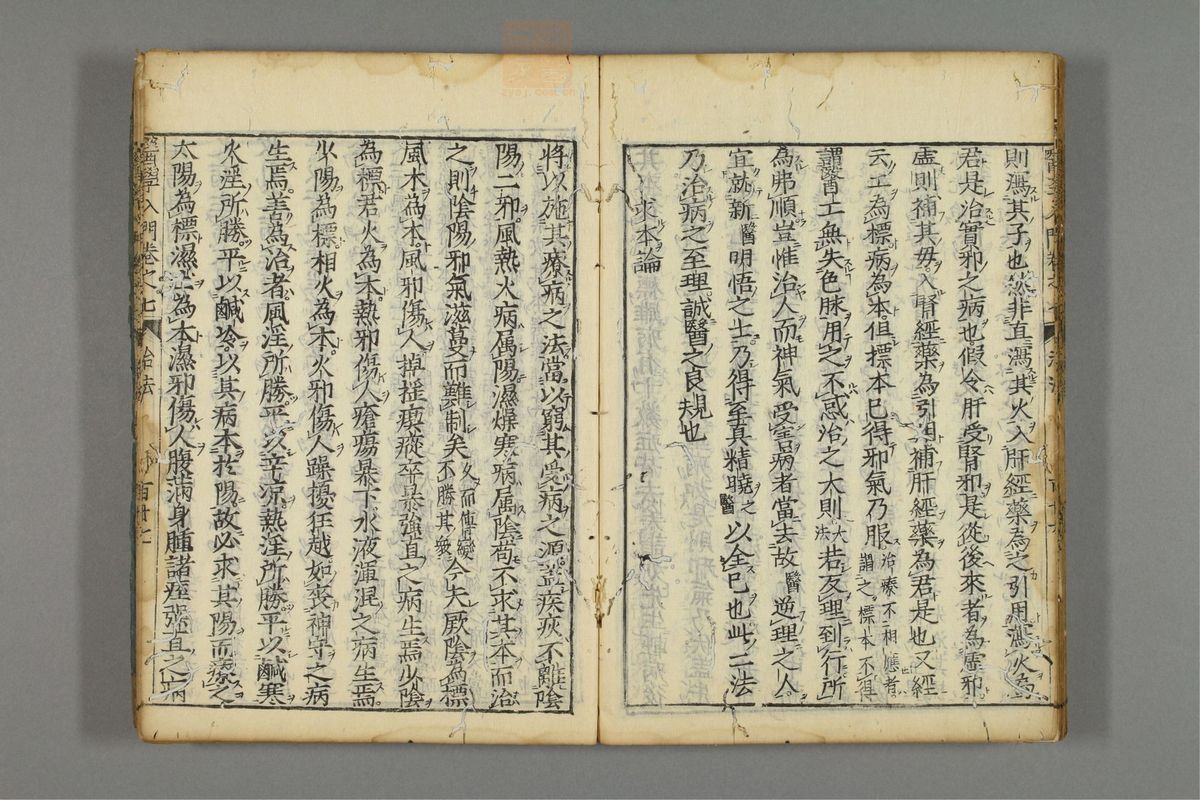 則瀉其子也然非直瀉其火入肝經藥為之引用瀉火為
君是治實邪之病也假令肝受腎邪是從後來者為虛邪
虛則補其母入腎經藥為引用補肝經藥為君是也又經
云工為標病為本但標本已得邪氣乃服治療不相應者謂之標本不得
謂醫工無失色脉用之不惑治之大則大法若反理到行所
為弗順豈惟治人而神氣受害病者當去故醫逆理之人
宜就新醫明悟之士乃得至真精曉之醫以全已也此二法
乃治病之至理誠醫之良規也
求本論
將以施其療病之法當以窮其受病之源蓋疾疢不離陰
陽二邪風熱火病属陽濕燥寒病属陰苟不求其本而治
之則陰陽邪氣滋蔓而難制矣久而傳變不勝其衆今夫厥陰為標
風木為本風邪傷人掉揺瘈瘲卒暴強直之病生焉少陰
為標君火為本熱邪傷人瘡瘍暴下水液渾混之病生焉
少陽為標相火為本火邪傷人躁擾狂越如喪神守之病
生焉善為治者風淫所勝平以辛凉熱淫所勝平以鹹寒
火淫所勝平以鹹冷以其病本於陽故必求其陽而療之
太陽為標濕土為本濕邪傷人腹滿身腫諸痙強直之病
醫學入門卷之七 治法